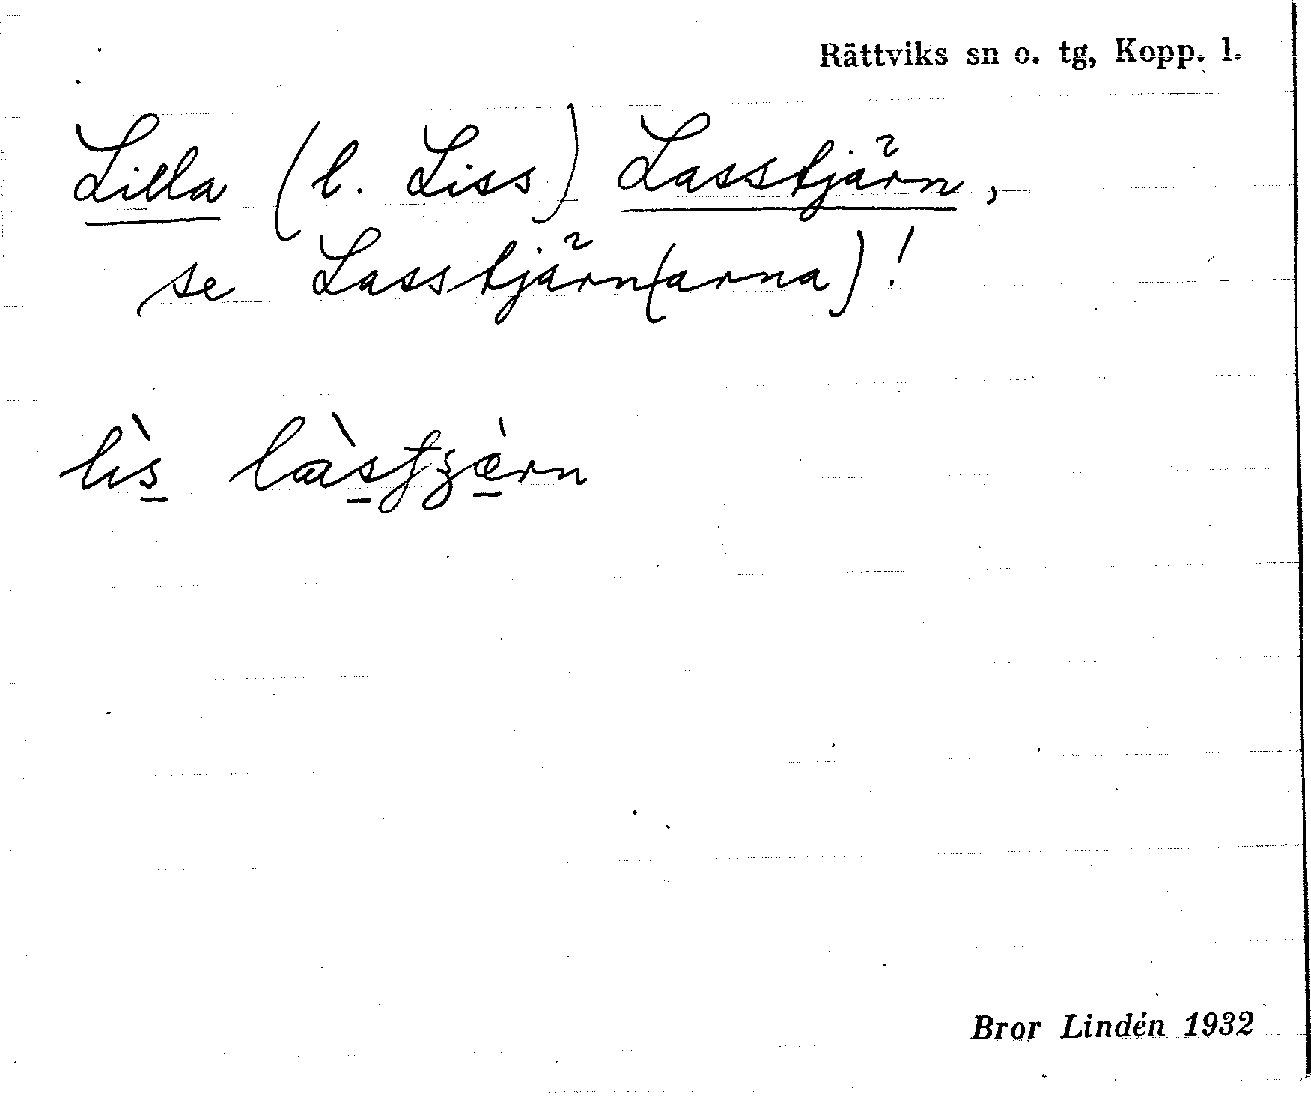 Rättviks sn o. tg, Kopp. l.
Lilla (l. Liss) Lasstjärn,
se Lasstjärn(arna)!
lìs
Bror Lindén 1932